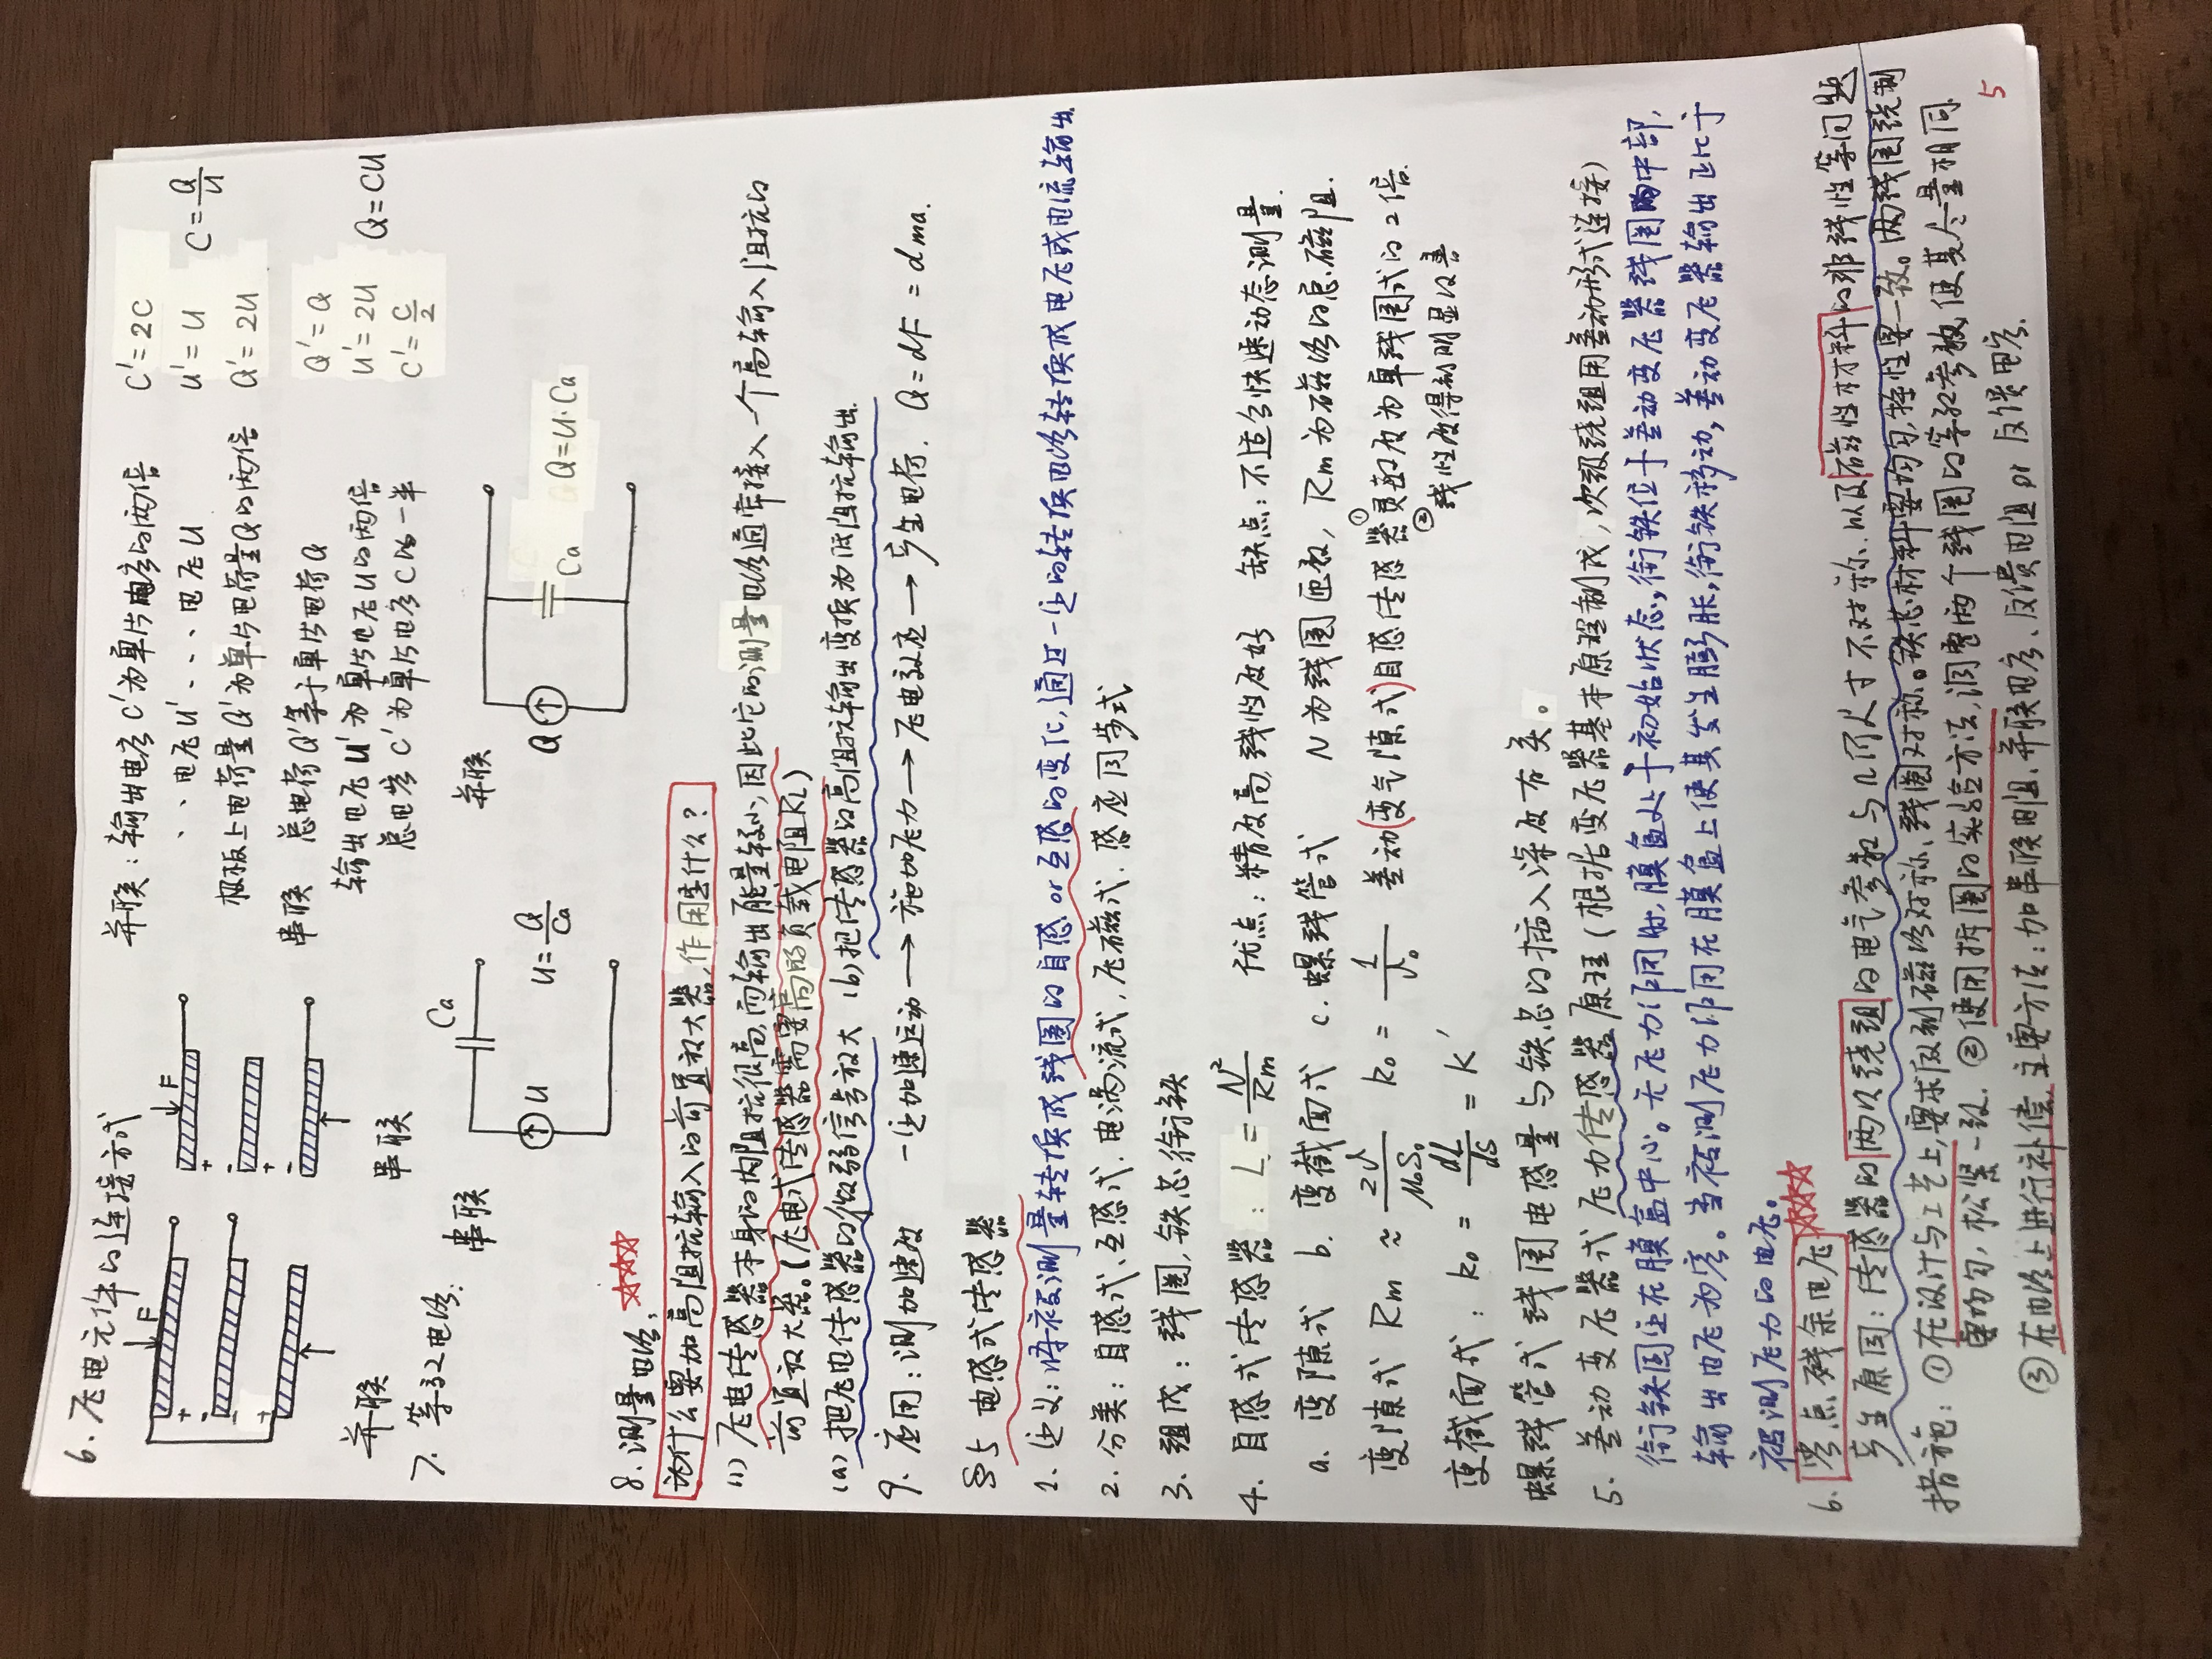 6. 压电元件的连接方式
F
F
+
-
-
+
+
-
+
-
并联
串联
并联：输出电容C'为单片电容的两倍 C'=2C
、、电压U'、、、电压U U'=U C=Q/U
极板上电荷量Q'为单片电荷量Q的两倍 Q'=2U
串联 总电荷Q'等于单片电荷Q Q'=Q
输出电压U'为单片电压U的两倍 U'=2U Q=CU
总电容C'为单片电容C的一半 C'=C/2
7. 等效电路：
串联 Ca U U=Q/Ca
并联 Q Ca Q=U·Ca
8. 测量电路： ☆☆☆
为什么要加高阻抗输入的前置放大器,作用是什么？
(1) 压电传感器本身的内阻抗很高,而输出能量较小,因此它的测量电路通常接入一个高输入阻抗的
前置放大器。(压电式传感器需要高的负载电阻RL)
(a) 把压电传感器的微弱信号放大 (b) 把传感器的高阻抗输出变换为低阻抗输出.
9. 应用：测加速度 一定加速运动→施加压力→压电效应→产生电荷. Q=dF=dma.
§5 电感式传感器
1. 定义：将被测量转换成线圈的自感or互感的变化,通过一定的转换电路转换成电压或电流输出.
2. 分类：自感式、互感式.电涡流式,压磁式.感应同步式
3. 组成：线圈,铁芯衔铁
4. 自感式传感器： L=N²/Rm 优点：精度高,线性度好 缺点：不适合快速动态测量.
a. 变隙式 b. 变截面式 c. 螺线管式 N为线圈匝数, Rm为磁路的总磁阻.
变隙式 Rm ≈ 2δ/μ₀S₀ k₀=1/δ₀ 差动(变气隙式)自感传感器①灵敏度为单线圈式的2倍.
②线性度得到明显改善
变截面式：k₀=dL/ds=K'
螺线管式线圈电感量与铁芯的插入深度有关。
5. 差动变压器式压力传感器原理(根据变压器基本原理制成,次级绕组用差动形式连接)
衔铁固定在膜盒中心。无压力作用时,膜盒处于初始状态,衔铁位于差动变压器线圈的中部,
输出电压为零。当被测压力作用在膜盒上使其发生膨胀,衔铁移动,差动变压器输出正比于
被测压力的电压。
6. 零点残余电压 ☆☆☆
产生原因：传感器的两次绕组的电气参数与几何尺寸不对称.以及磁性材料的非线性等问题
措施：①在设计与工艺上,要求做到磁路对称、线圈对称。铁芯材料要均匀,特性要一致。两线圈绕制
要均匀,松紧一致. ②使用拆圈的实验方法,调整两个线圈的等效参数,使其尽量相同.
③在电路上进行补偿.主要方法：加串联电阻、并联电容、反馈电阻or反馈电容.
5